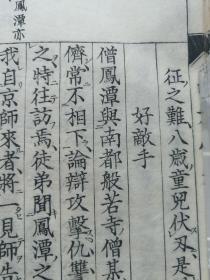 征之難八歳童兒伏刃是
好敵手
僧鳳潭與南都般若寺僧某
儕常不相下論辯攻擊仇讐
之特往訪焉徒弟聞鳳潭之
我自京師來者將一見師生
鳳潭亦